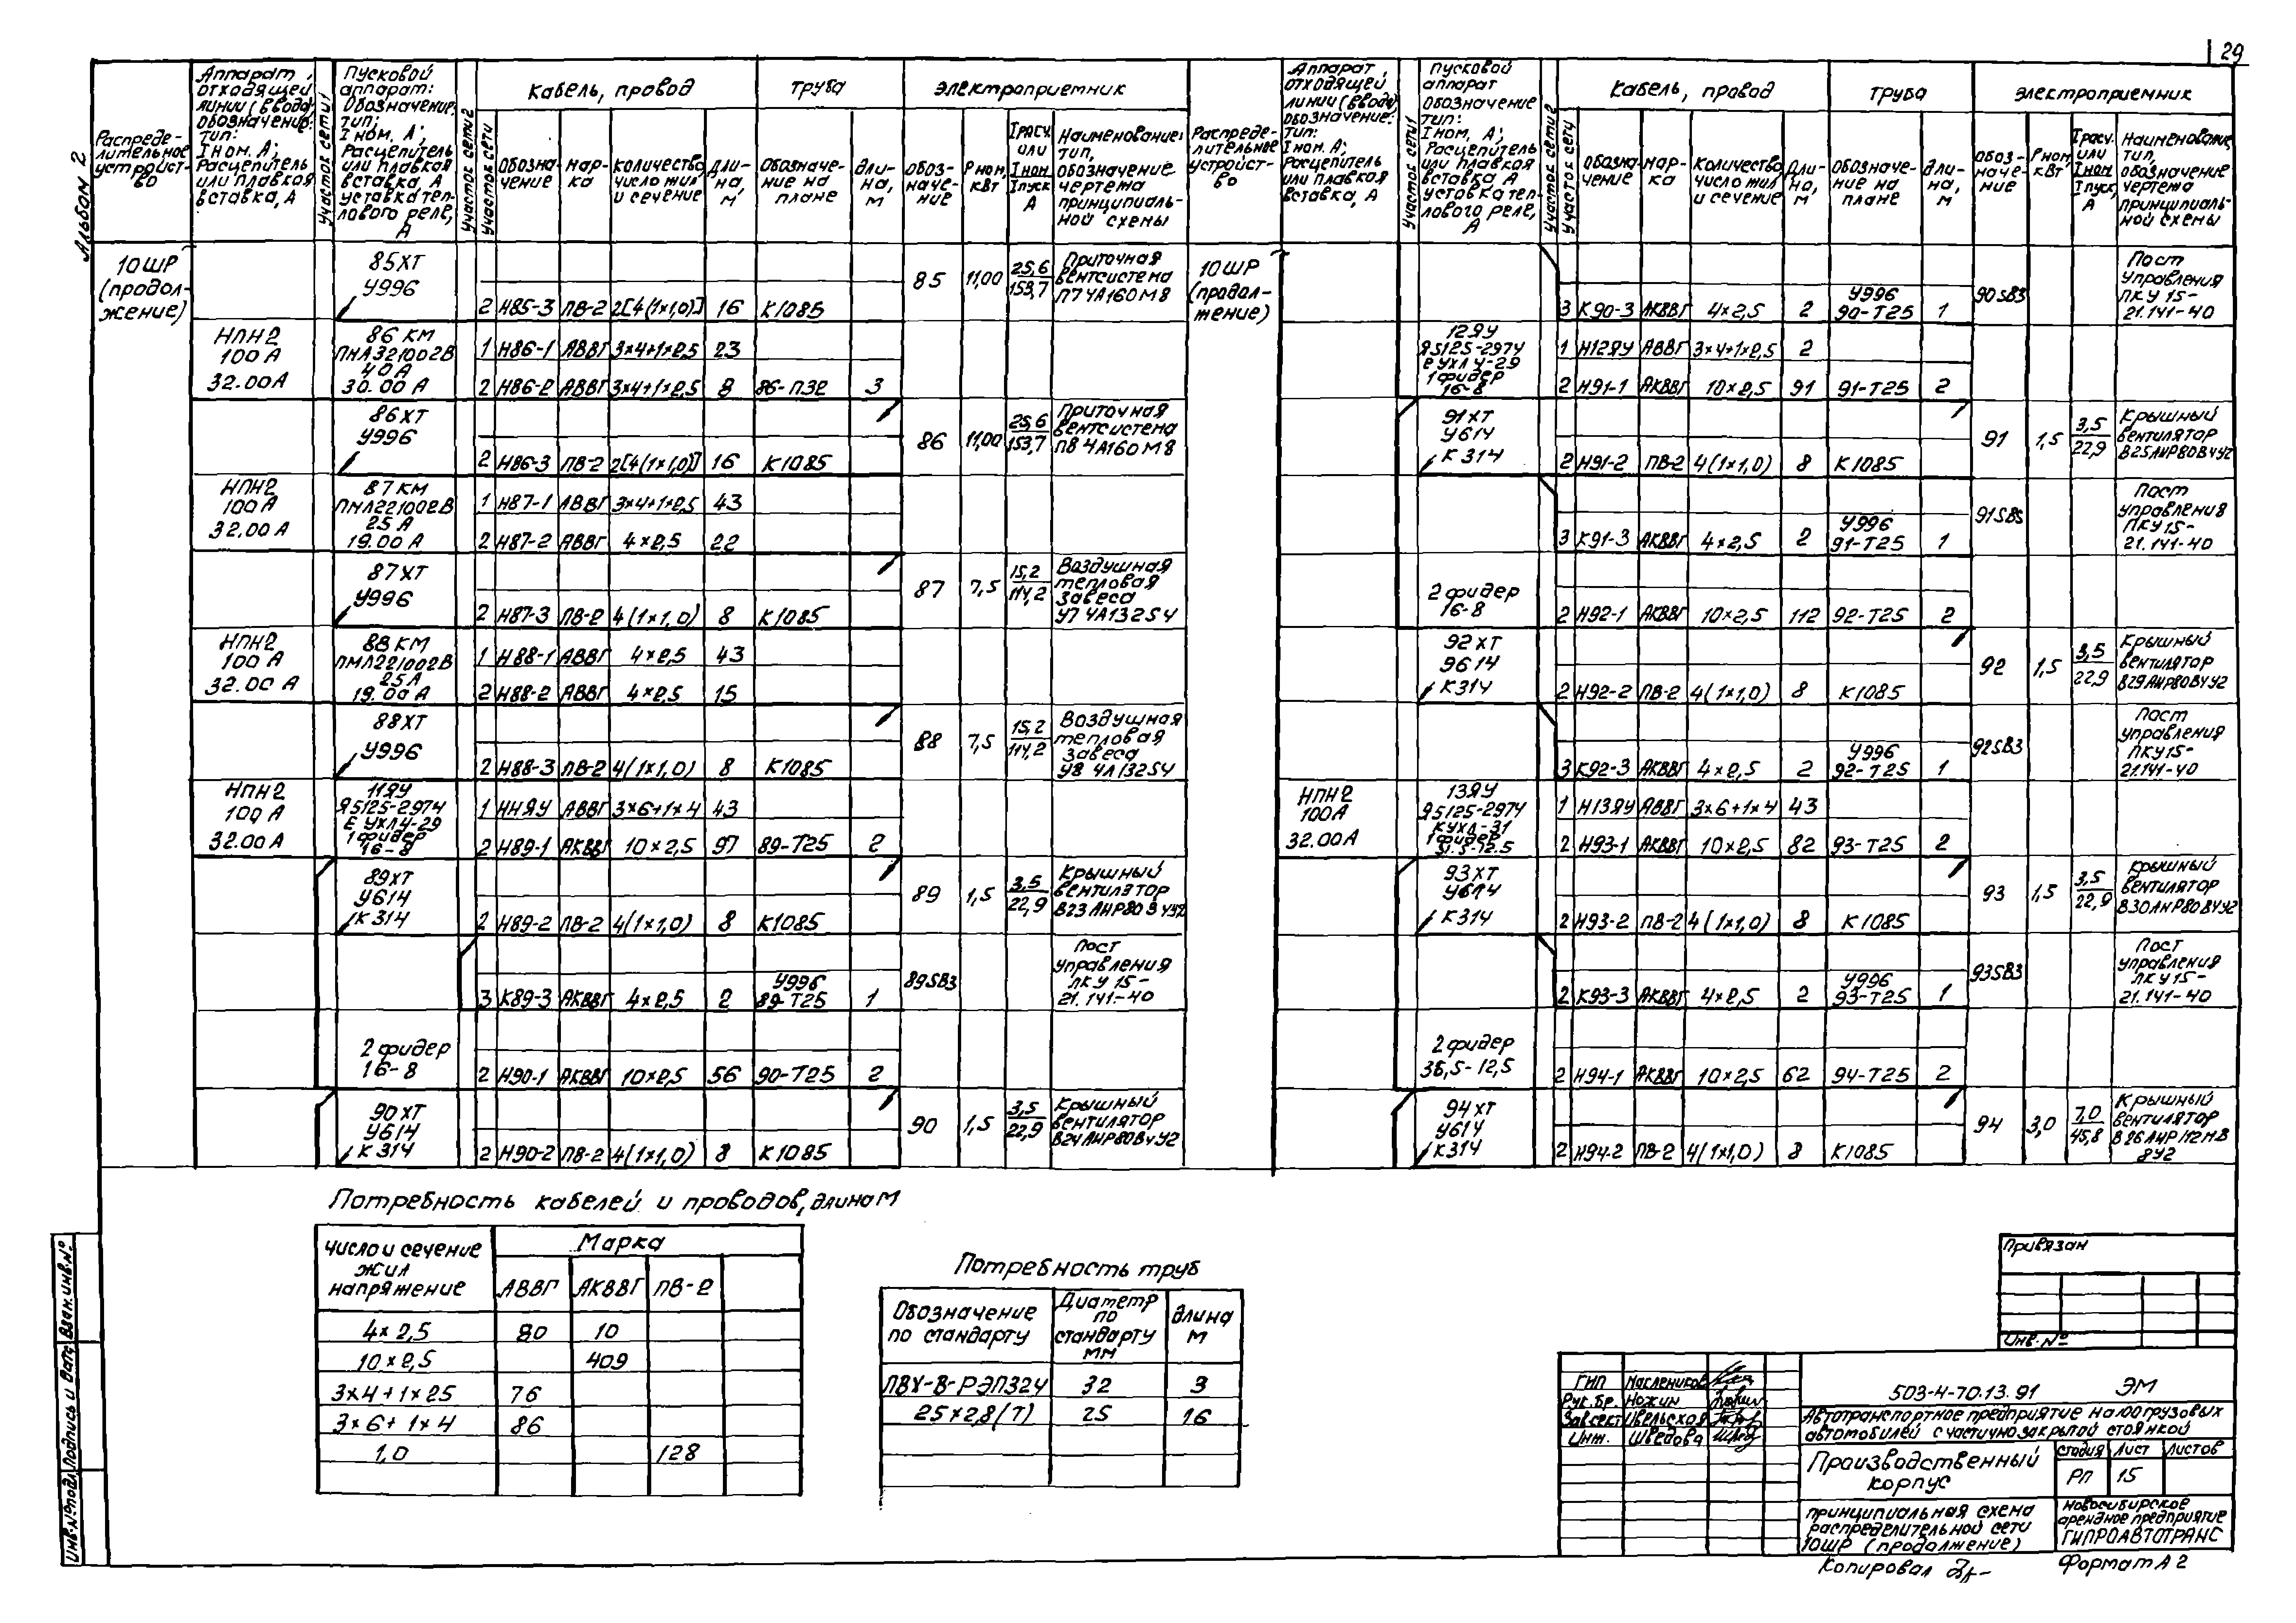 29
Альбом 2
Распреде-
лительное
устройст-
во
Аппарат,
отходящей
линии (ввода)
обозначение;
тип:
Iном. А;
Расцепитель
или плавкая
вставка, А
Участок сети 1
Пусковой
аппарат:
Обозначение;
тип;
Iном, А;
Расцепитель
или плавкая
вставка, А
уставка теп-
лового реле,
А
Участок сети 2
Участок сети
Кабель, провод
Обозна-
чение
Мар-
ка
Количество,
число жил
и сечение
Дли-
на,
м
Труба
Обозначе-
ние на
плане
Дли-
на,
м
Электроприемник
Обоз-
наче-
ние
Рном.
кВт
Iрасч.
или
Iном
Iпуск
А
Наименование;
тип,
обозначение
чертежа
принципиаль-
ной схемы
10ШР
(продол-
жение)
85ХТ
У996
2 Н85-3 ПВ-2 2[4(1×1,0)] 16 К1085
85 11,00 25,6 153,7
Приточная
вентсистема
П7 4А160М8
НПН2
100 А
32.00А
86 КМ
ПМЛ321002В
40А
30.00 А
1 Н86-1 АВВГ 3×4+1×2,5 23
2 Н86-2 АВВГ 3×4+1×2,5 8 86-П32 3
86ХТ
У996
2 Н86-3 ПВ-2 2[4(1×1,0)] 16 К1085
86 11,00 25,6 153,7
Приточная
вентсистема
П8 4А160М8
НПН2
100А
32.00А
87КМ
ПМЛ221002В
25 А
19.00 А
1 Н87-1 АВВГ 3×4+1×2,5 43
2 Н87-2 АВВГ 4×2,5 22
87ХТ
У996
2 Н87-3 ПВ-2 4(1×1,0) 8 К1085
87 7,5 15,2 114,2
Воздушная
тепловая
завеса
У7 4А132S4
НПН2
100 А
32.00 А
88 КМ
ПМЛ221002В
25А
19.00 А
1 Н88-1 АВВГ 4×2,5 43
2 Н88-2 АВВГ 4×2,5 15
88ХТ
У996
2 Н88-3 ПВ-2 4(1×1,0) 8 К1085
88 7,5 15,2 114,2
Воздушная
тепловая
завеса
У8 4А132S4
НПН2
100 А
32.00А
11ЯУ
Я5125-2974
Е УХЛ4-29
1фидер
16-8
1 Н11ЯУ АВВГ 3×6+1×4 43
2 Н89-1 АКВВГ 10×2,5 97 89-Т25 2
89ХТ
У614
К314
2 Н89-2 ПВ-2 4(1×1,0) 8 К1085
89 1,5 3,5 22,9
Крышный
вентилятор
В23 АИР80В4У2
3 К89-3 АКВВГ 4×2,5 2 У996 89-Т25 1
89SB3
Пост
управления
ПКУ 15-
21.141-40
2 фидер
16-8
2 Н90-1 АКВВГ 10×2,5 56 90-Т25 2
90ХТ
У614
К314
2 Н90-2 ПВ-2 4(1×1,0) 8 К1085
90 1,5 3,5 22,9
Крышный
вентилятор
В24АИР80В4У2
Распреде-
лительное
устройст-
во
Аппарат,
отходящей
линии (ввода)
обозначение:
тип:
Iном. А;
Расцепитель
или плавкая
вставка, А
Участок сети 1
Пусковой
аппарат
обозначение
тип:
Iном, А;
Расцепитель
или плавкая
вставка А
уставка теп-
лового реле,
А
Участок сети 2
Участок сети
Кабель, провод
Обозна-
чение
Мар-
ка
Количество
число жил
и сечение
Дли-
на,
м
Труба
Обозначе-
ние на
плане
Дли-
на,
м
Электроприемник
Обоз-
наче-
ние
Рном.
кВт
Iрасч.
или
Iном
Iпуск,
А
Наименование,
тип,
обозначение
чертежа
принципиаль-
ной схемы
10ШР
(продол-
жение)
3 К90-3 АКВВГ 4×2,5 2 У996 90-Т25 1
90SB3
Пост
управления
ПКУ 15-
21.141-40
12ЯУ
Я5125-2974
Е УХЛ4-29
1фидер
16-8
1 Н12ЯУ АВВГ 3×4+1×2,5 2
2 Н91-1 АКВВГ 10×2,5 91 91-Т25 2
91ХТ
У614
К314
2 Н91-2 ПВ-2 4(1×1,0) 8 К1085
91 1,5 3,5 22,9
Крышный
вентилятор
В25АИР80В4У2
3 К91-3 АКВВГ 4×2,5 2 У996 91-Т25 1
Пост
управления
ПКУ15-
21.141-40
2 фидер
16-8
2 Н92-1 АКВВГ 10×2,5 112 92-Т25 2
92ХТ
9614
К314
2 Н92-2 ПВ-2 4(1×1,0) 8 К1085
92 1,5 3,5 22,9
Крышный
вентилятор
В29АИР80В4У2
3 К92-3 АКВВГ 4×2,5 2 У996 92-Т25 1
92SB3
Пост
управления
ПКУ15-
21.141-40
НПН2
100А
32.00А
13ЯУ
Я5125-2974
1фидер
1 Н13ЯУ АВВГ 3×6+1×4 43
2 Н93-1 АКВВГ 10×2,5 82 93-Т25 2
93ХТ
У614
К314
2 Н93-2 ПВ-2 4(1×1,0) 8 К1085
93 1,5 3,5 22,9
Крышный
вентилятор
В30АИР80В4У2
2 К93-3 АКВВГ 4×2,5 2 У996 93-Т25 1
93SB3
Пост
управления
ПКУ 15-
21.141-40
2 фидер
2 Н94-1 АКВВГ 10×2,5 62 94-Т25 2
94ХТ
У614
К314
2 Н94-2 ПВ-2 4(1×1,0) 8 К1085
94 3,0 7,0 45,8
Крышный
вентилятор
Потребность кабелей и проводов, длина м
Число и сечение
жил
напряжение
Марка
АВВГ АКВВГ ПВ-2
4×2,5 80 10
10×2,5 409
3×4+1×25 76
3×6+1×4 86
1,0 128
Потребность труб
Обозначение
по стандарту
Диаметр
по
стандарту
мм
Длина
м
32 3
25×2,8(Т) 25 16
Привязан
Инв. №
ГИП Маслеников
Рук.бр. Ножин
Зав.сект.
Инж. Шведова
503-4-70.13.91 ЭМ
Автотранспортное предприятие на 100 грузовых
автомобилей с частично закрытой стоянкой
Производственный
корпус
Стадия Лист Листов
РП 15
Принципиальная схема
распределительной сети
10ШР (продолжение)
Новосибирское
арендное предприятие
ГИПРОАВТОТРАНС
Копировал
Формат А2
Взам. инв. №
Подпись и дата
Инв. № подл.